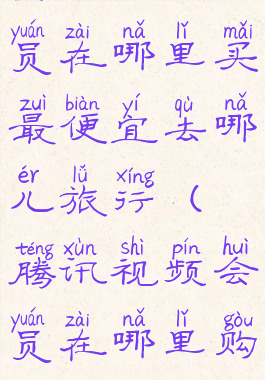 yuán zài nǎ lǐ mǎi
员在哪里买
zuì biàn yí qù nǎ
最便宜去哪
ér lǚ xíng
儿旅行（
téng xùn shì pín huì
腾讯视频会
yuán zài nǎ lǐ gòu
员在哪里购